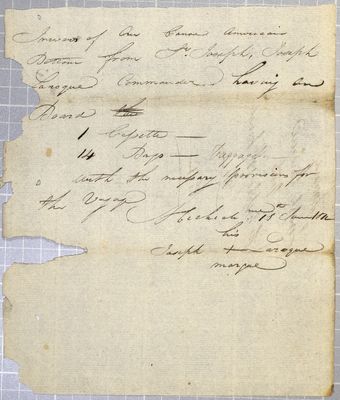 Inward of One Canoe American
Bottom from St. Joseph, Joseph
Laroque Commander having on
Board
1 Cassette —
14 Bags — Baggage
with the necessary provisions for
the Voyage
15th June
his
Joseph + Laroque
marque